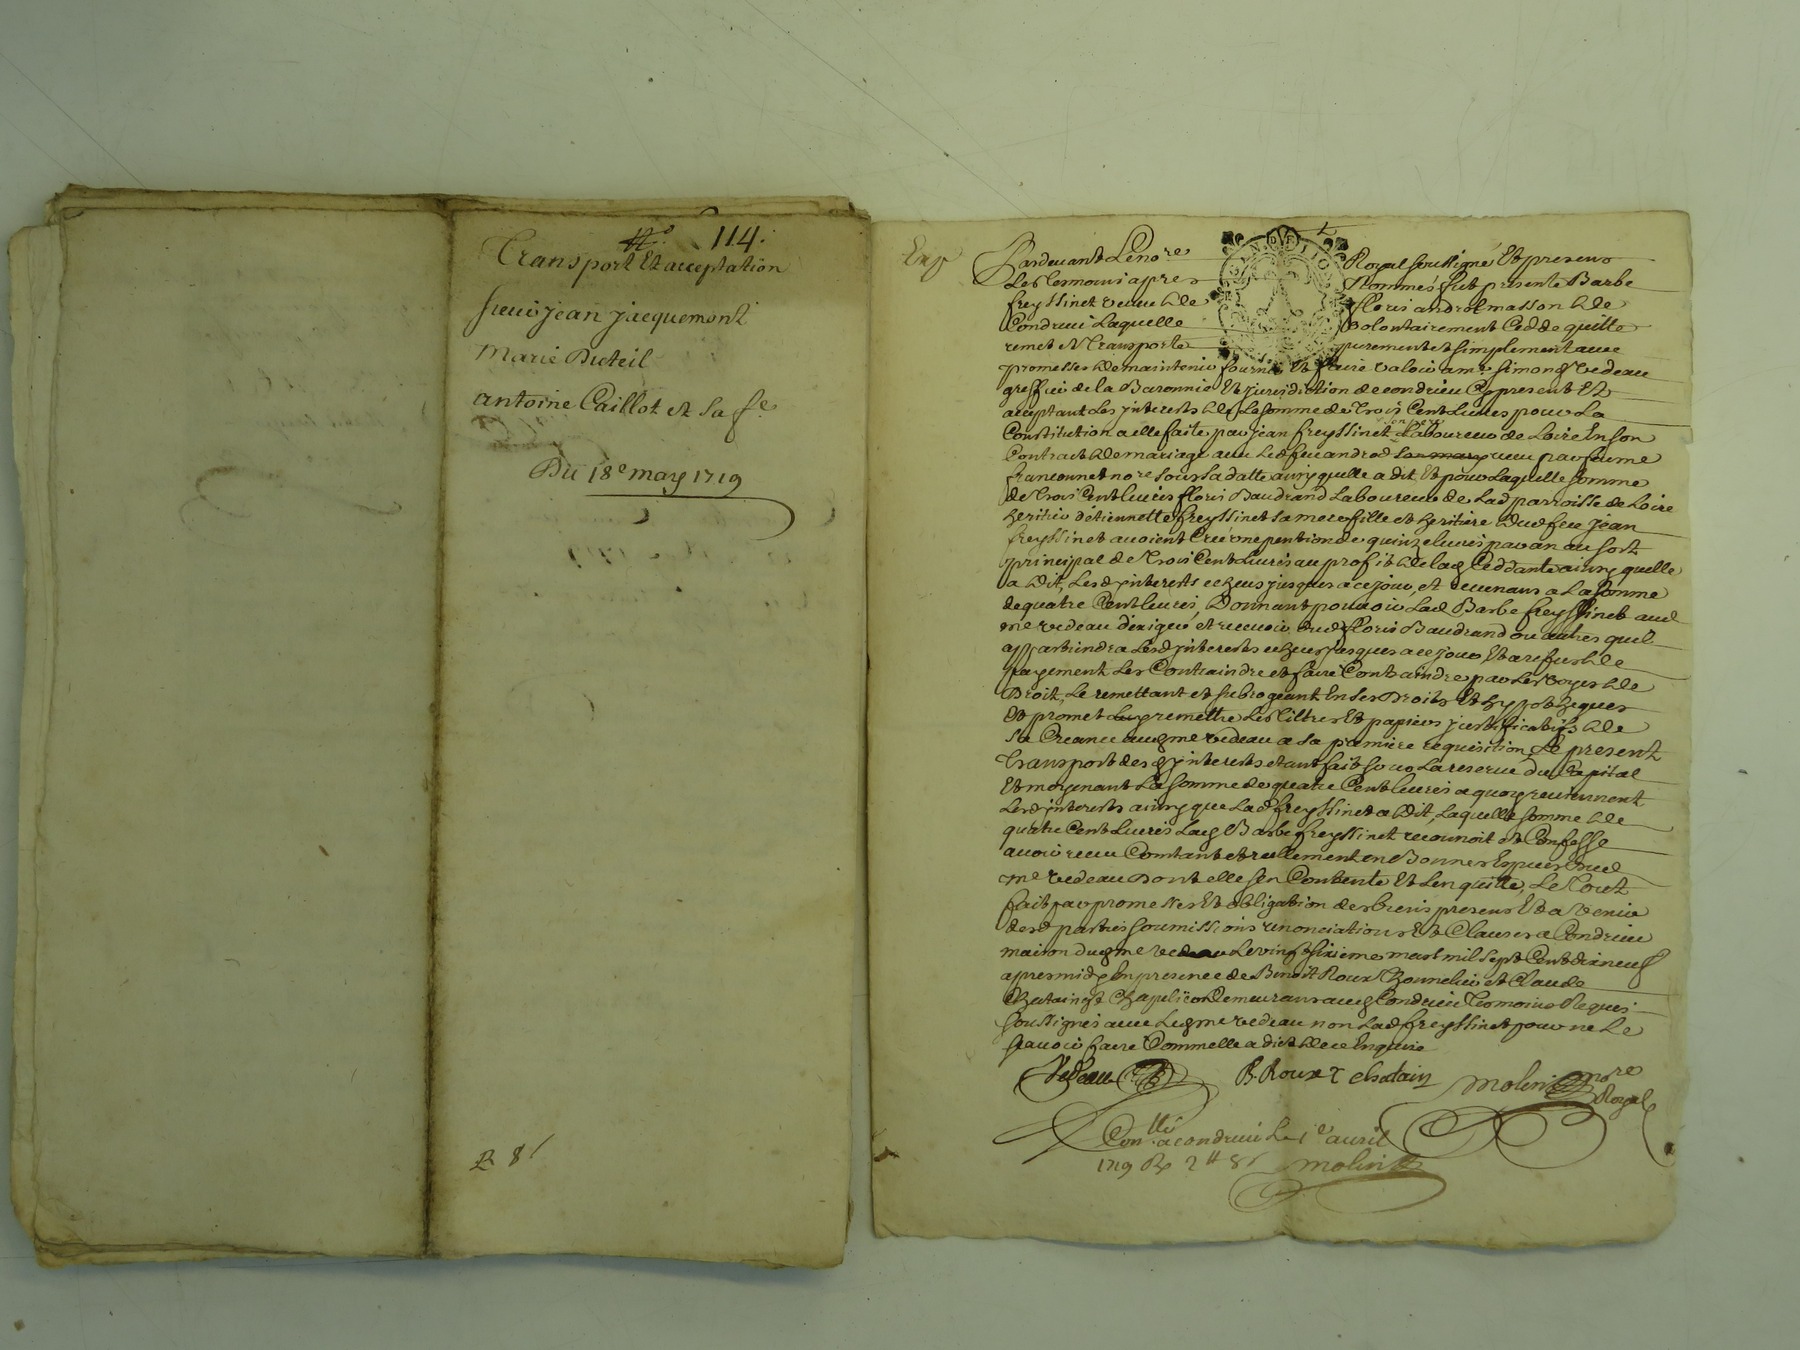 N.º 114.
Transport Et acceptation
sieur jean jacquemont
Marie Duteil
antoine Caillot et sa f.e
Du 18e may 1719
B 8
Exp
Pardevant Le no.re Royal soussigné Et presens
Les tesmoins apres Nommes fut presente Barbe
freyssinet veuve de floris androt masson de
Condrieu Laquelle volontairement Cedde quitte
remet et Transporte purement et simplement avec
promesse de maintenir fournir Et faire valoir a m.e simon vedeau
greffier de la Baronnie Et jurisdiction de condrieu Cy present Et
acceptant Les jnterests de La somme de trois Cent Livres pour La
Constitution a elle faite par jean freyssinet Laboureur de Loire En son
Contract de mariage avec Led feu androd reçeu par
francounet no.re sous sa datte ainsy quelle a dit Et pour Laquelle somme
de trois Cent livres floris Baudrand Laboureur de Lad parroisse de Loire
heritier d'étiennette freyssinet sa mere fille et heritiere dud feu jean
freyssinet avoient Creé une pention de quinze livres par an au sort
principal de trois Cent Livres au profit de lad Ceddante ainsy quelle
a dit, Lesd jnterests echeus jusques a ce jour, et revenans a La somme
de quatre Cent livres, Donnant pouvoir Lad Barbe freyssinet aud
me vedeau d'exiger et recevoir dud floris Baudrand ou autres quil
appartiendra Lesd jnterests echeus jusques a ce jour Et a refus de
payement Les Contraindre et faire Contraindre par Les voyes de
Droit, Le remettant et subrogeant En ses Droits Et hypotheques
Et promet remettre Les tiltres Et papiers justificatifs de
sa Creance aud me vedeau a sa premiere requisition, Le present
transport desd jnterests etant fait sous La reserve du Capital
Et moyenant La somme de quatre Cent livres a quoy reviennent
Lesd jnterests ainsy que Lad freyssinet a Dit, Laquelle somme de
quatre Cent Livres Lad Barbe freyssinet reconnoit Et Confesse
avoir receu Comtant et reellement en Bonnes Especes dud
me vedeau Dont elle sen Contente Et Len quitte, Le tout
fait par promesses Et obligation des biens presens Et a venir
desd parties soumissions renonciations Et Clauses a Condrieu
maison dud me vedeau Le vingt sixieme mars mil sept Cent dixneuf
apres midy En presence de Benoit Roux et Claude
demeurans aud Condrieu Tesmoins Requis
soussignes avec Led me vedeau non Lad freyssinet pour ne Le
sçavoir faire Comme elle a dit de ce Enquise
Vedeau B. Roux C chatain Molin no.re
Royal
Con.llé a condrieu Le 1.e avril
1719 R 2 # 8 s molin